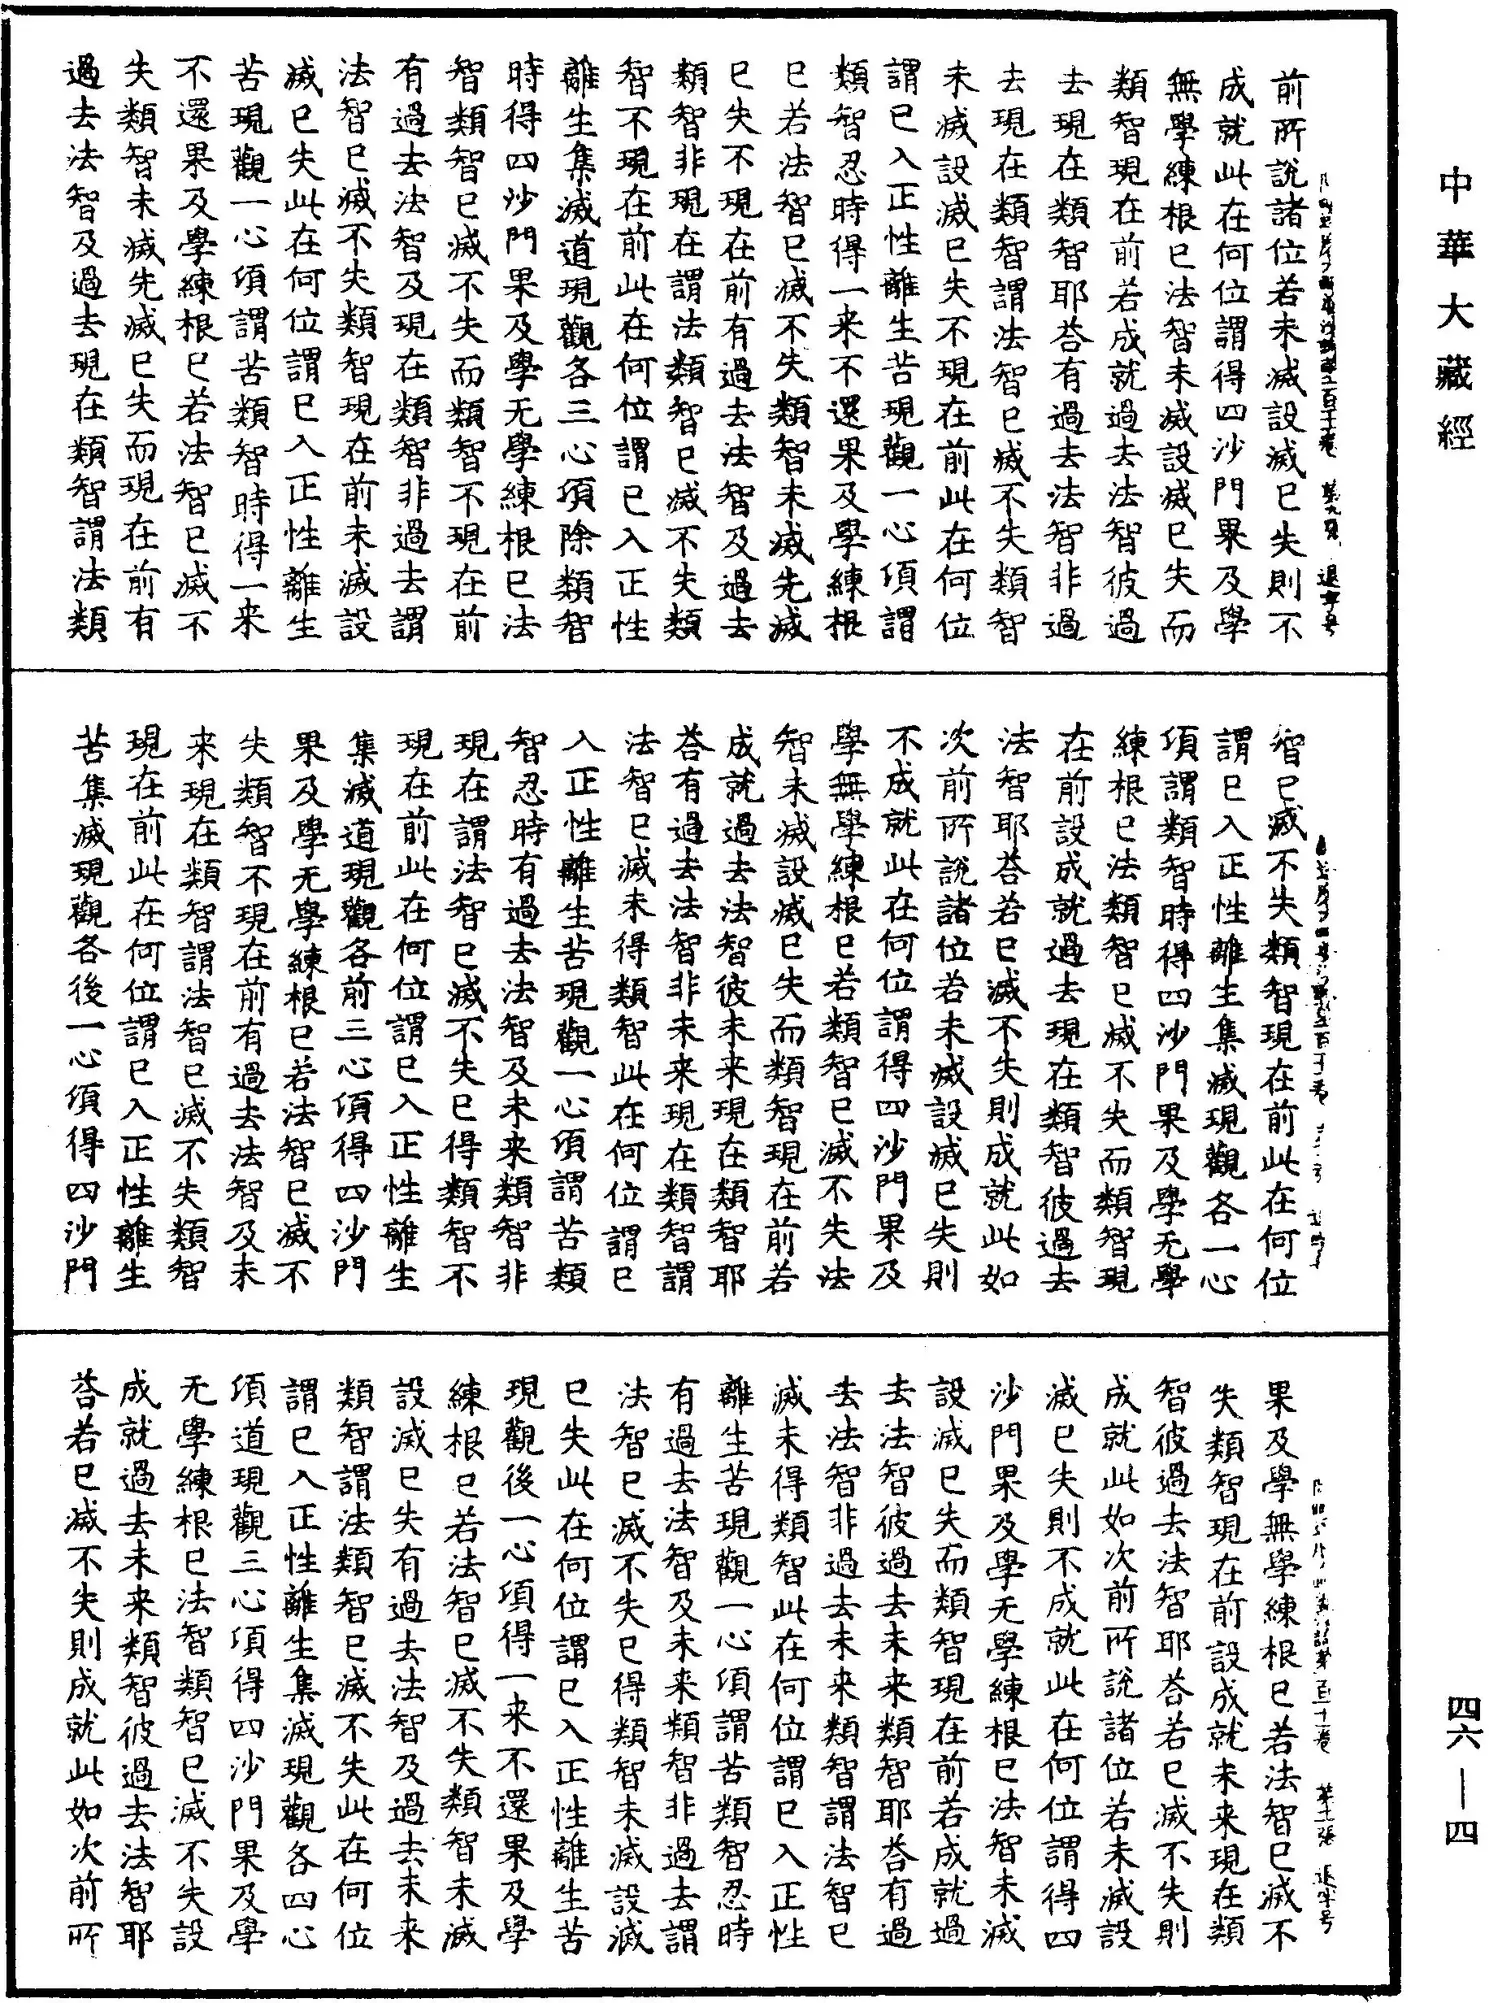 中華大藏經
前所說諸位若未滅設滅已失則不
成就此在何位謂得四沙門果及學
無學練根已法智未滅設滅已失而
類智現在前若成就過去法智彼過
去現在類智耶荅有過去法智非過
去現在類智謂法智已滅不失類智
未滅設滅已失不現在前此在何位
謂已入正性離生苦現觀一心頃謂
類智忍時得一来不還果及學練根
已若法智已滅不失類智未滅先滅
已失不現在前有過去法智及過去
類智非現在謂法類智已滅不失類
智不現在前此在何位謂已入正性
離生集滅道現觀各三心頃除類智
時得四沙門果及學无學練根已法
智類智已滅不失而類智不現在前
有過去法智及現在類智非過去謂
法智已滅不失類智現在前未滅設
滅已失此在何位謂已入正性離生
苦現觀一心頃謂苦類智時得一来
不還果及學練根已若法智已滅不
失類智未滅先滅已失而現在前有
過去法智及過去現在類智謂法類
智已滅不失類智現在前此在何位
謂已入正性離生集滅現觀各一心
頃謂類智時得四沙門果及學无學
練根已法類智已滅不失而類智現
在前設成就過去現在類智彼過去
法智耶荅若已滅不失則成就此如
次前所說諸位若未滅設滅已失則
不成就此在何位謂得四沙門果及
學無學練根已若類智已滅不失法
智未滅設滅已失而類智現在前若
成就過去法智彼未来現在類智耶
荅有過去法智非未来現在類智謂
法智已滅未得類智此在何位謂已
入正性離生苦現觀一心頃謂苦類
智忍時有過去法智及未来類智非
現在謂法智已滅不失已得類智不
現在前此在何位謂已入正性離生
集滅道現觀各前三心頃得四沙門
果及學无學練根已若法智已滅不
失類智不現在前有過去法智及未
来現在類智謂法智已滅不失類智
現在前此在何位謂已入正性離生
苦集滅現觀各後一心頃得四沙門
果及學無學練根已若法智已滅不
失類智現在前設成就未来現在類
智彼過去法智耶荅若已滅不失則
成就此如次前所說諸位若未滅設
滅已失則不成就此在何位謂得四
沙門果及學无學練根已法智未滅
設滅已失而類智現在前若成就過
去法智彼過去未来類智耶荅有過
去法智非過去未来類智謂法智已
滅未得類智此在何位謂已入正性
離生苦現觀一心頃謂苦類智忍時
有過去法智及未来類智非過去謂
法智已滅不失已得類智未滅設滅
已失此在何位謂已入正性離生苦
現觀後一心頃得一来不還果及學
練根已若法智已滅不失類智未滅
設滅已失有過去法智及過去未来
類智謂法類智已滅不失此在何位
謂已入正性離生集滅現觀各四心
頃道現觀三心頃得四沙門果及學
无學練根已法智類智已滅不失設
成就過去未来類智彼過去法智耶
荅若已滅不失則成就此如次前所
四六—四